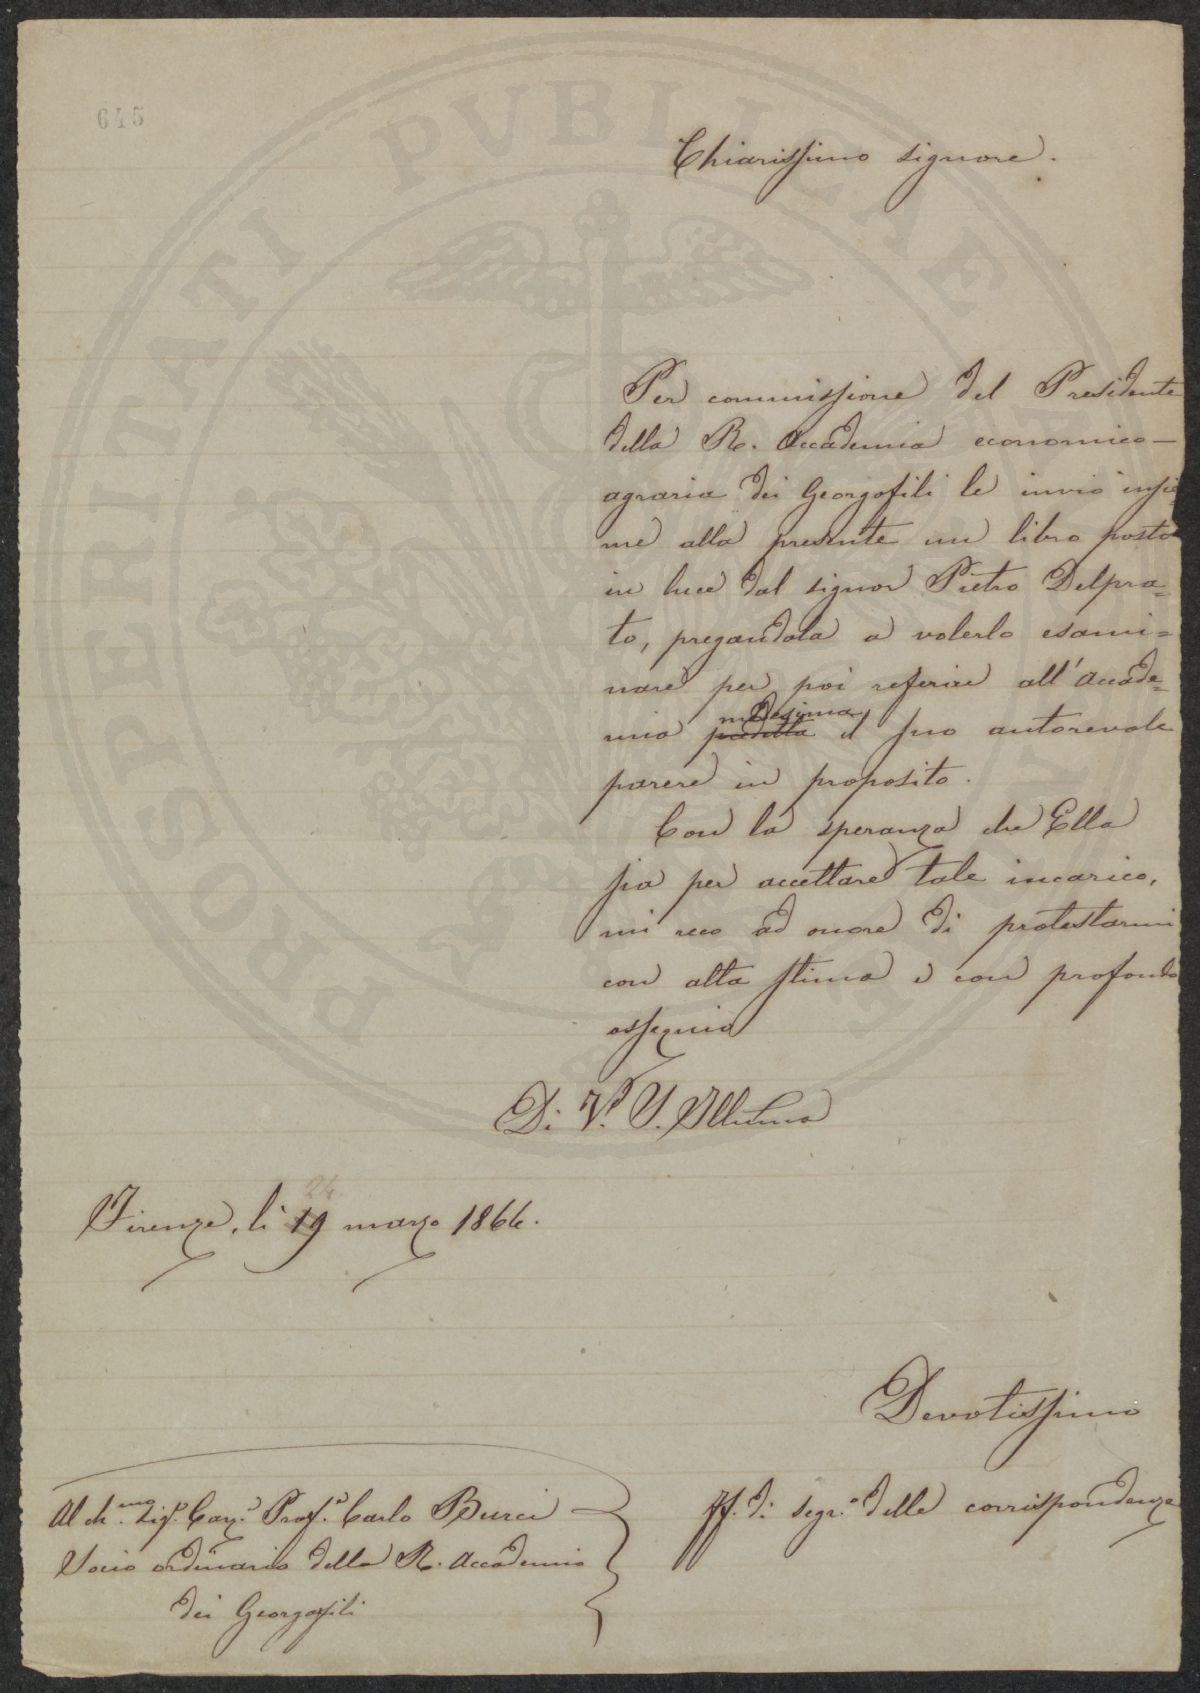 645
PROSPERITATI PVBLICAE
Chiarissimo signore.
Per commissione del Presidente
della R. Accademia economico-
agraria dei Georgofili le invio insie=
me alla presente un libro posto
in luce dal signor Pietro Delpra=
to, pregandola a volerlo esami=
nare per poi referire all'Accade=
medesima
mia predetta il suo autorevole
parere in proposito.
Con la speranza che Ella
sia per accettare tale incarico,
mi reco ad onore di protestarmi
con alta stima e con profondo
ossequio
Di V. S. Illustrma
24
Firenze, li 19 marzo 1866.
Devotissimo
Al ch.mo Sig.r Cav.e Prof.e Carlo Burci
Socio ordinario della R. Accademia
dei Georgofili
ff. di segr.o delle corrispondenze